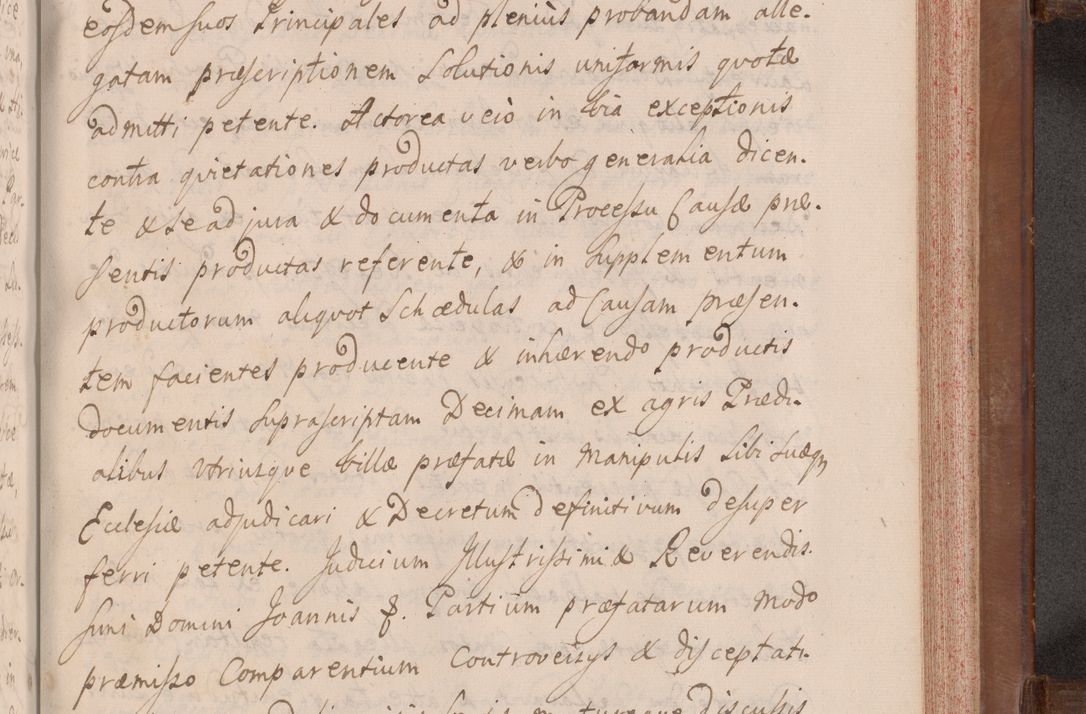 eosdem suos Principales ad plenius probandam alle-
gatam præscriptionem Solutionis uniformis quotæ
admitti petente. Actorea verò in via exceptionis
contra quietationes productas verbo generalia dicen-
te & se ad jura & documenta in Processu Causæ præ-
sentis productas referente, & in Supplementum
productorum aliquot Schædulas ad Causam præsen-
tem facientes producente & inhærendo productis
documentis suprascriptam Decimam ex agris Prædi-
alibus utriusque villæ præfatæ in Manipulis Sibi Suæq
Ecclesiæ adjudicari & Decretum definitivum desuper
ferri petente. Judicium Illustrissimi & Reverendis-
simi Domini Joannis &. Partium præfatarum modo
præmisso Comparentium Controversys & disceptati-
discussis